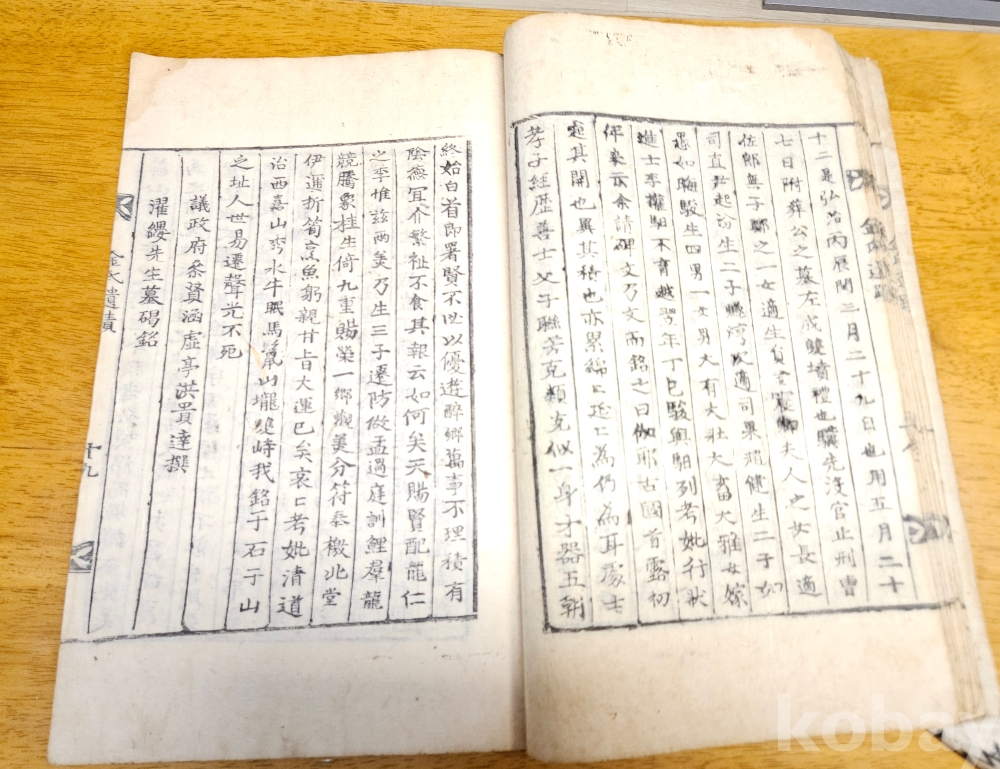 十二是弘治丙辰閏三月二十九日也用五月二十
七日附葬公之墓左成雙墳禮也驥先沒官止刑曹
佐郎無子鄭之一女適生員夫人之女長適
司直起汾生二子次適司果健生二子如
愚如晦駿生四男一女男大有大壯大畜大雅女嫁
進士李馹不育越翌年丁巳駿與馹列考妣行狀
伻來示余請碑文乃文而銘之曰伽耶古國首露初
起其開也異其積也亦累綿〻延〻為仍為耳承士
孝子經歷善士父子聯芳克類克似一身才器五朝
終始白首即署賢不必以優遊醉鄉萬事不理積有
陰德宜介繁祉不食其報云如何矣天賜賢配龍仁
之李惟玆兩美乃生三子遷防做孟過庭訓鯉羣龍
競騰象桂生倚九重賜榮一鄉觀美分符奉檄北堂
伊邇折筍烹魚躬親甘旨大運已矣哀〻考妣清道
治西嘉山秀水牛眠馬鬣山壠雙峙我銘于石于山
之址人世易遷聲光不死
議政府參贊涵虛亭洪貴達撰
濯纓先生墓碣銘
金氏遺蹟
十九
kobay